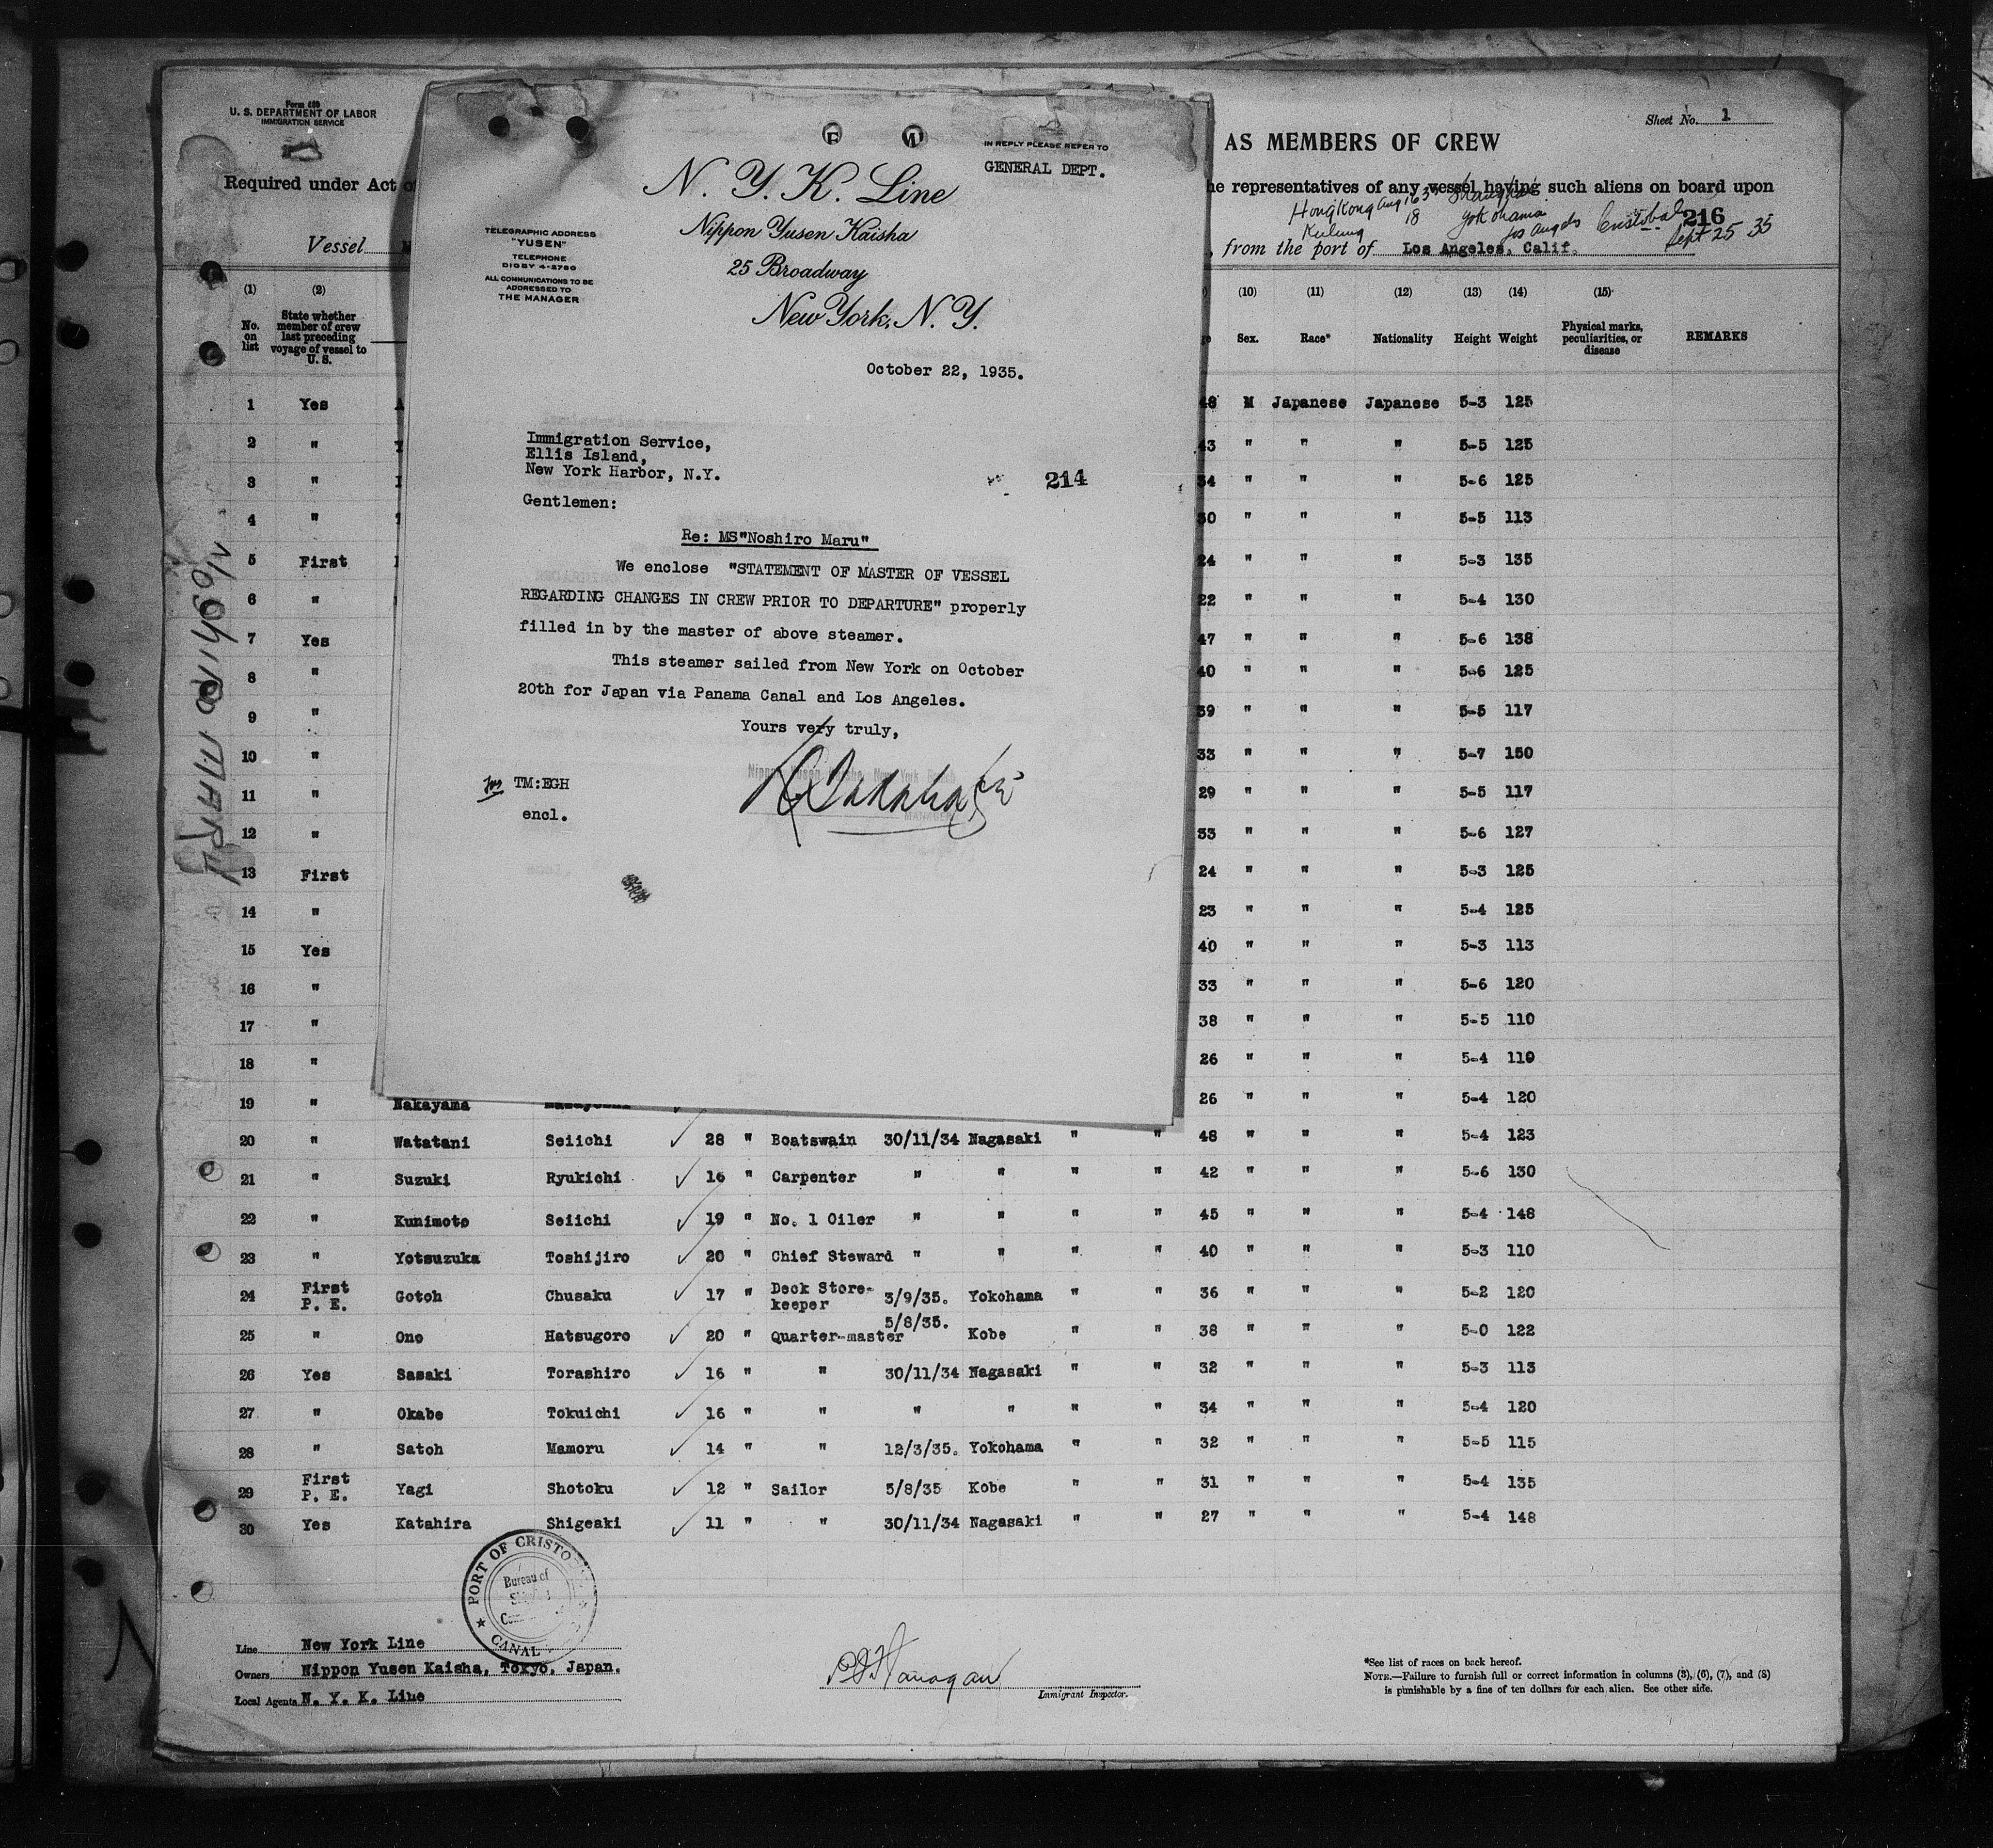 Form 680
U. S. DEPARTMENT OF LABOR
IMMIGRATION SERVICE
Required under Act of
Vessel
(1) (2)
No. on list
State whether member of crew last preceding voyage of vessel to U. S.
N. Y. K. Line
Nippon Yusen Kaisha
25 Broadway
New York, N. Y.
IN REPLY PLEASE REFER TO
GENERAL DEPT.
TELEGRAPHIC ADDRESS
"YUSEN"
TELEPHONE
DIGBY 4-2780
ALL COMMUNICATIONS TO BE
ADDRESSED TO
THE MANAGER
October 22, 1935.
Immigration Service,
Ellis Island,
New York Harbor, N.Y.
214
Gentlemen:
Re: MS"Noshiro Maru"
We enclose "STATEMENT OF MASTER OF VESSEL
REGARDING CHANGES IN CREW PRIOR TO DEPARTURE" properly
filled in by the master of above steamer.
This steamer sailed from New York on October
20th for Japan via Panama Canal and Los Angeles.
Yours very truly,
TM:EGH
encl.
MANAGER
Sheet No. 1
AS MEMBERS OF CREW
he representatives of any vessel having such aliens on board upon
HongKong Aug 16 35 Shanghai
18 Yokohama
Keelung Los Angeles Cristobal 216
Sept 25 35
, from the port of Los Angeles, Calif.
(10) (11) (12) (13) (14) (15)
Sex. Race* Nationality Height Weight Physical marks, peculiarities, or disease REMARKS
1 Yes 48 M Japanese Japanese 5-3 125
2 " 43 " " " 5-5 125
3 " 34 " " " 5-6 125
4 " 30 " " " 5-5 113
5 First 24 " " " 5-3 135
6 " 22 " " " 5-4 130
7 Yes 47 " " " 5-6 138
8 " 40 " " " 5-6 125
9 " 39 " " " 5-5 117
10 " 33 " " " 5-7 150
11 " 29 " " " 5-5 117
12 " 33 " " " 5-6 127
13 First 24 " " " 5-3 125
14 " 23 " " " 5-4 125
15 Yes 40 " " " 5-3 113
16 " 33 " " " 5-6 120
17 " 38 " " " 5-5 110
18 " 26 " " " 5-4 110
19 " Nakayama 26 " " " 5-4 120
20 " Watatani Seiichi ✓ 28 " Boatswain 30/11/34 Nagasaki " " 48 " " " 5-4 123
21 " Suzuki Ryukichi ✓ 16 " Carpenter " " " " 42 " " " 5-6 130
22 " Kunimoto Seiichi ✓ 19 " No. 1 Oiler " " " " 45 " " " 5-4 148
23 " Yotsuzuka Toshijiro ✓ 20 " Chief Steward " " " " 40 " " " 5-3 110
24 First P. E. Gotoh Chusaku ✓ 17 " Deck Store-keeper 3/9/35. Yokohama " " 36 " " " 5-2 120
25 " Ono Hatsugoro ✓ 20 " Quarter-master 5/8/35. Kobe " " 38 " " " 5-0 122
26 Yes Sasaki Torashiro ✓ 16 " " 30/11/34 Nagasaki " " 32 " " " 5-3 113
27 " Okabe Tokuichi ✓ 16 " " " " " " 34 " " " 5-4 120
28 " Satoh Mamoru ✓ 14 " " 12/3/35. Yokohama " " 32 " " " 5-5 115
29 First P. E. Yagi Shotoku ✓ 12 " Sailor 5/8/35 Kobe " " 31 " " " 5-4 135
30 Yes Katahira Shigeaki ✓ 11 " " 30/11/34 Nagasaki " " 27 " " " 5-4 148
PORT OF CRISTO
Bureau of
CANAL
Line New York Line
Owners Nippon Yusen Kaisha, Tokyo, Japan.
Local Agents N. Y. K. Line
Immigrant Inspector.
*See list of races on back hereof.
NOTE.—Failure to furnish full or correct information in columns (3), (6), (7), and (8)
is punishable by a fine of ten dollars for each alien. See other side.